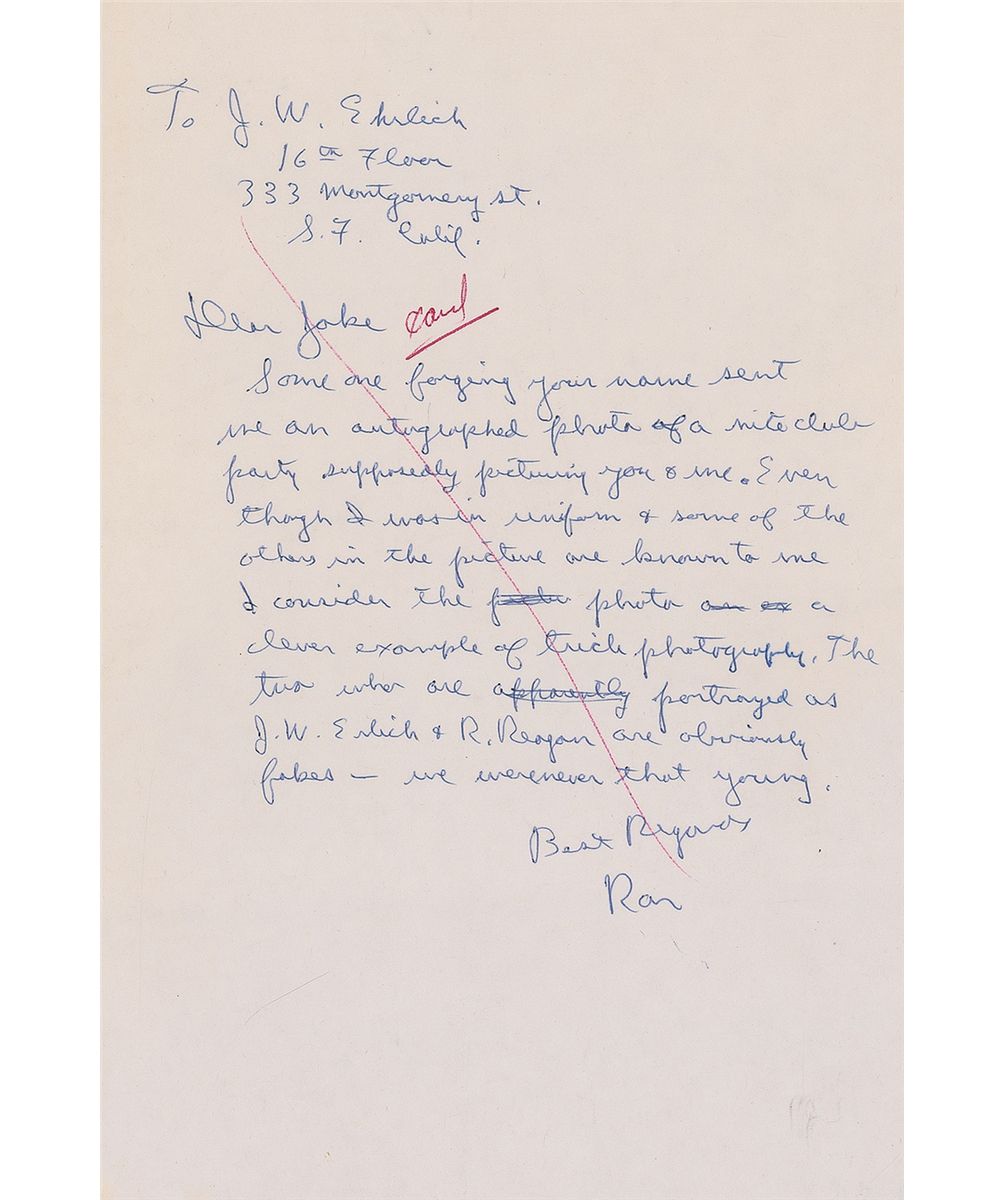 To J. W. Ehrlich
16th Floor
333 Montgomery st.
S.F. Calif.
Dear Jake
Some one forging your name sent
me an autographed photo of a nite club
party supposedly picturing you & me. Even
though I was in uniform & some of the
others in the picture are known to me
I consider the photo a
clever example of trick photography. The
two who are apparently portrayed as
J.W. Erlich & R. Reagan are obviously
fakes — we were never that young.
Best Regards
Ron